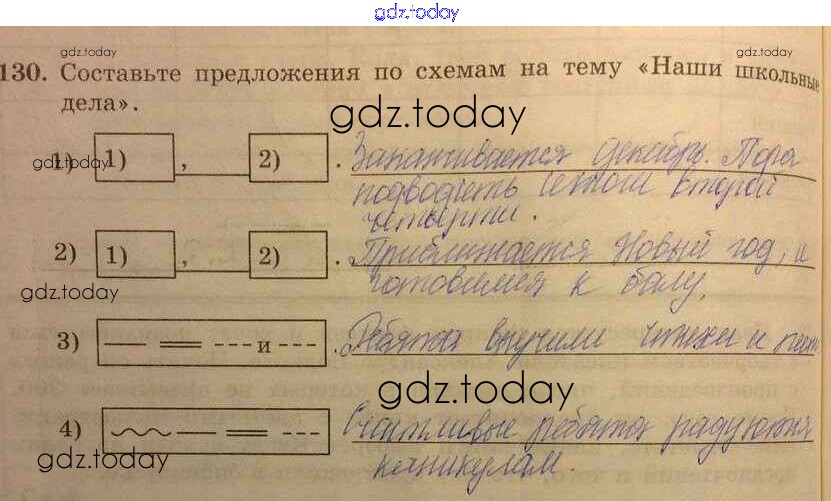 gdz.today
gdz.today gdz.today
130. Составьте предложения по схемам на тему «Наши школьные
дела».
gdz.today
1) 1) , 2) . Заканчивается декабрь. Пора
gdz.today
подводить итоги второй
четверти.
2) 1) , 2) . Приближается Новый год, и
готовимся к балу.
gdz.today
3) и . Ребята выучили стихи и
gdz.today
4) Счастливые ребята радуются
каникулам.
gdz.today